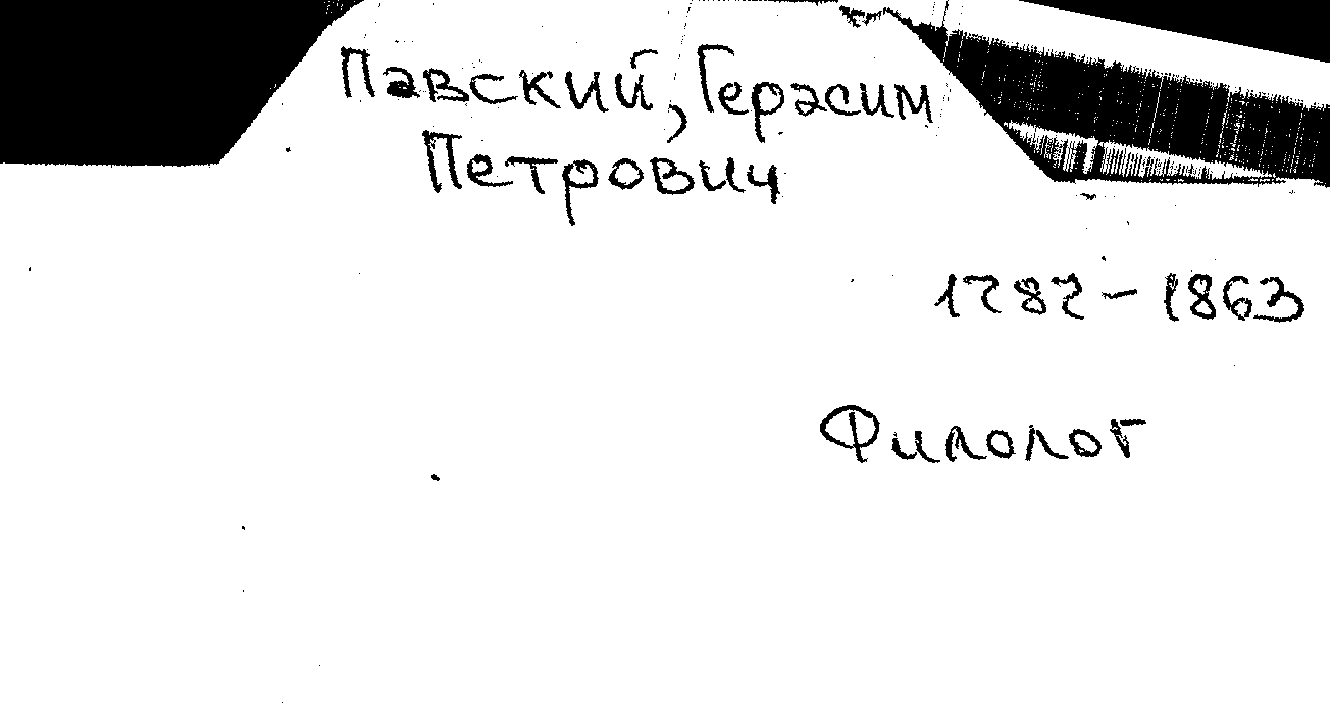 Павский, Герасим
Петрович
1787 – 1863
Филолог